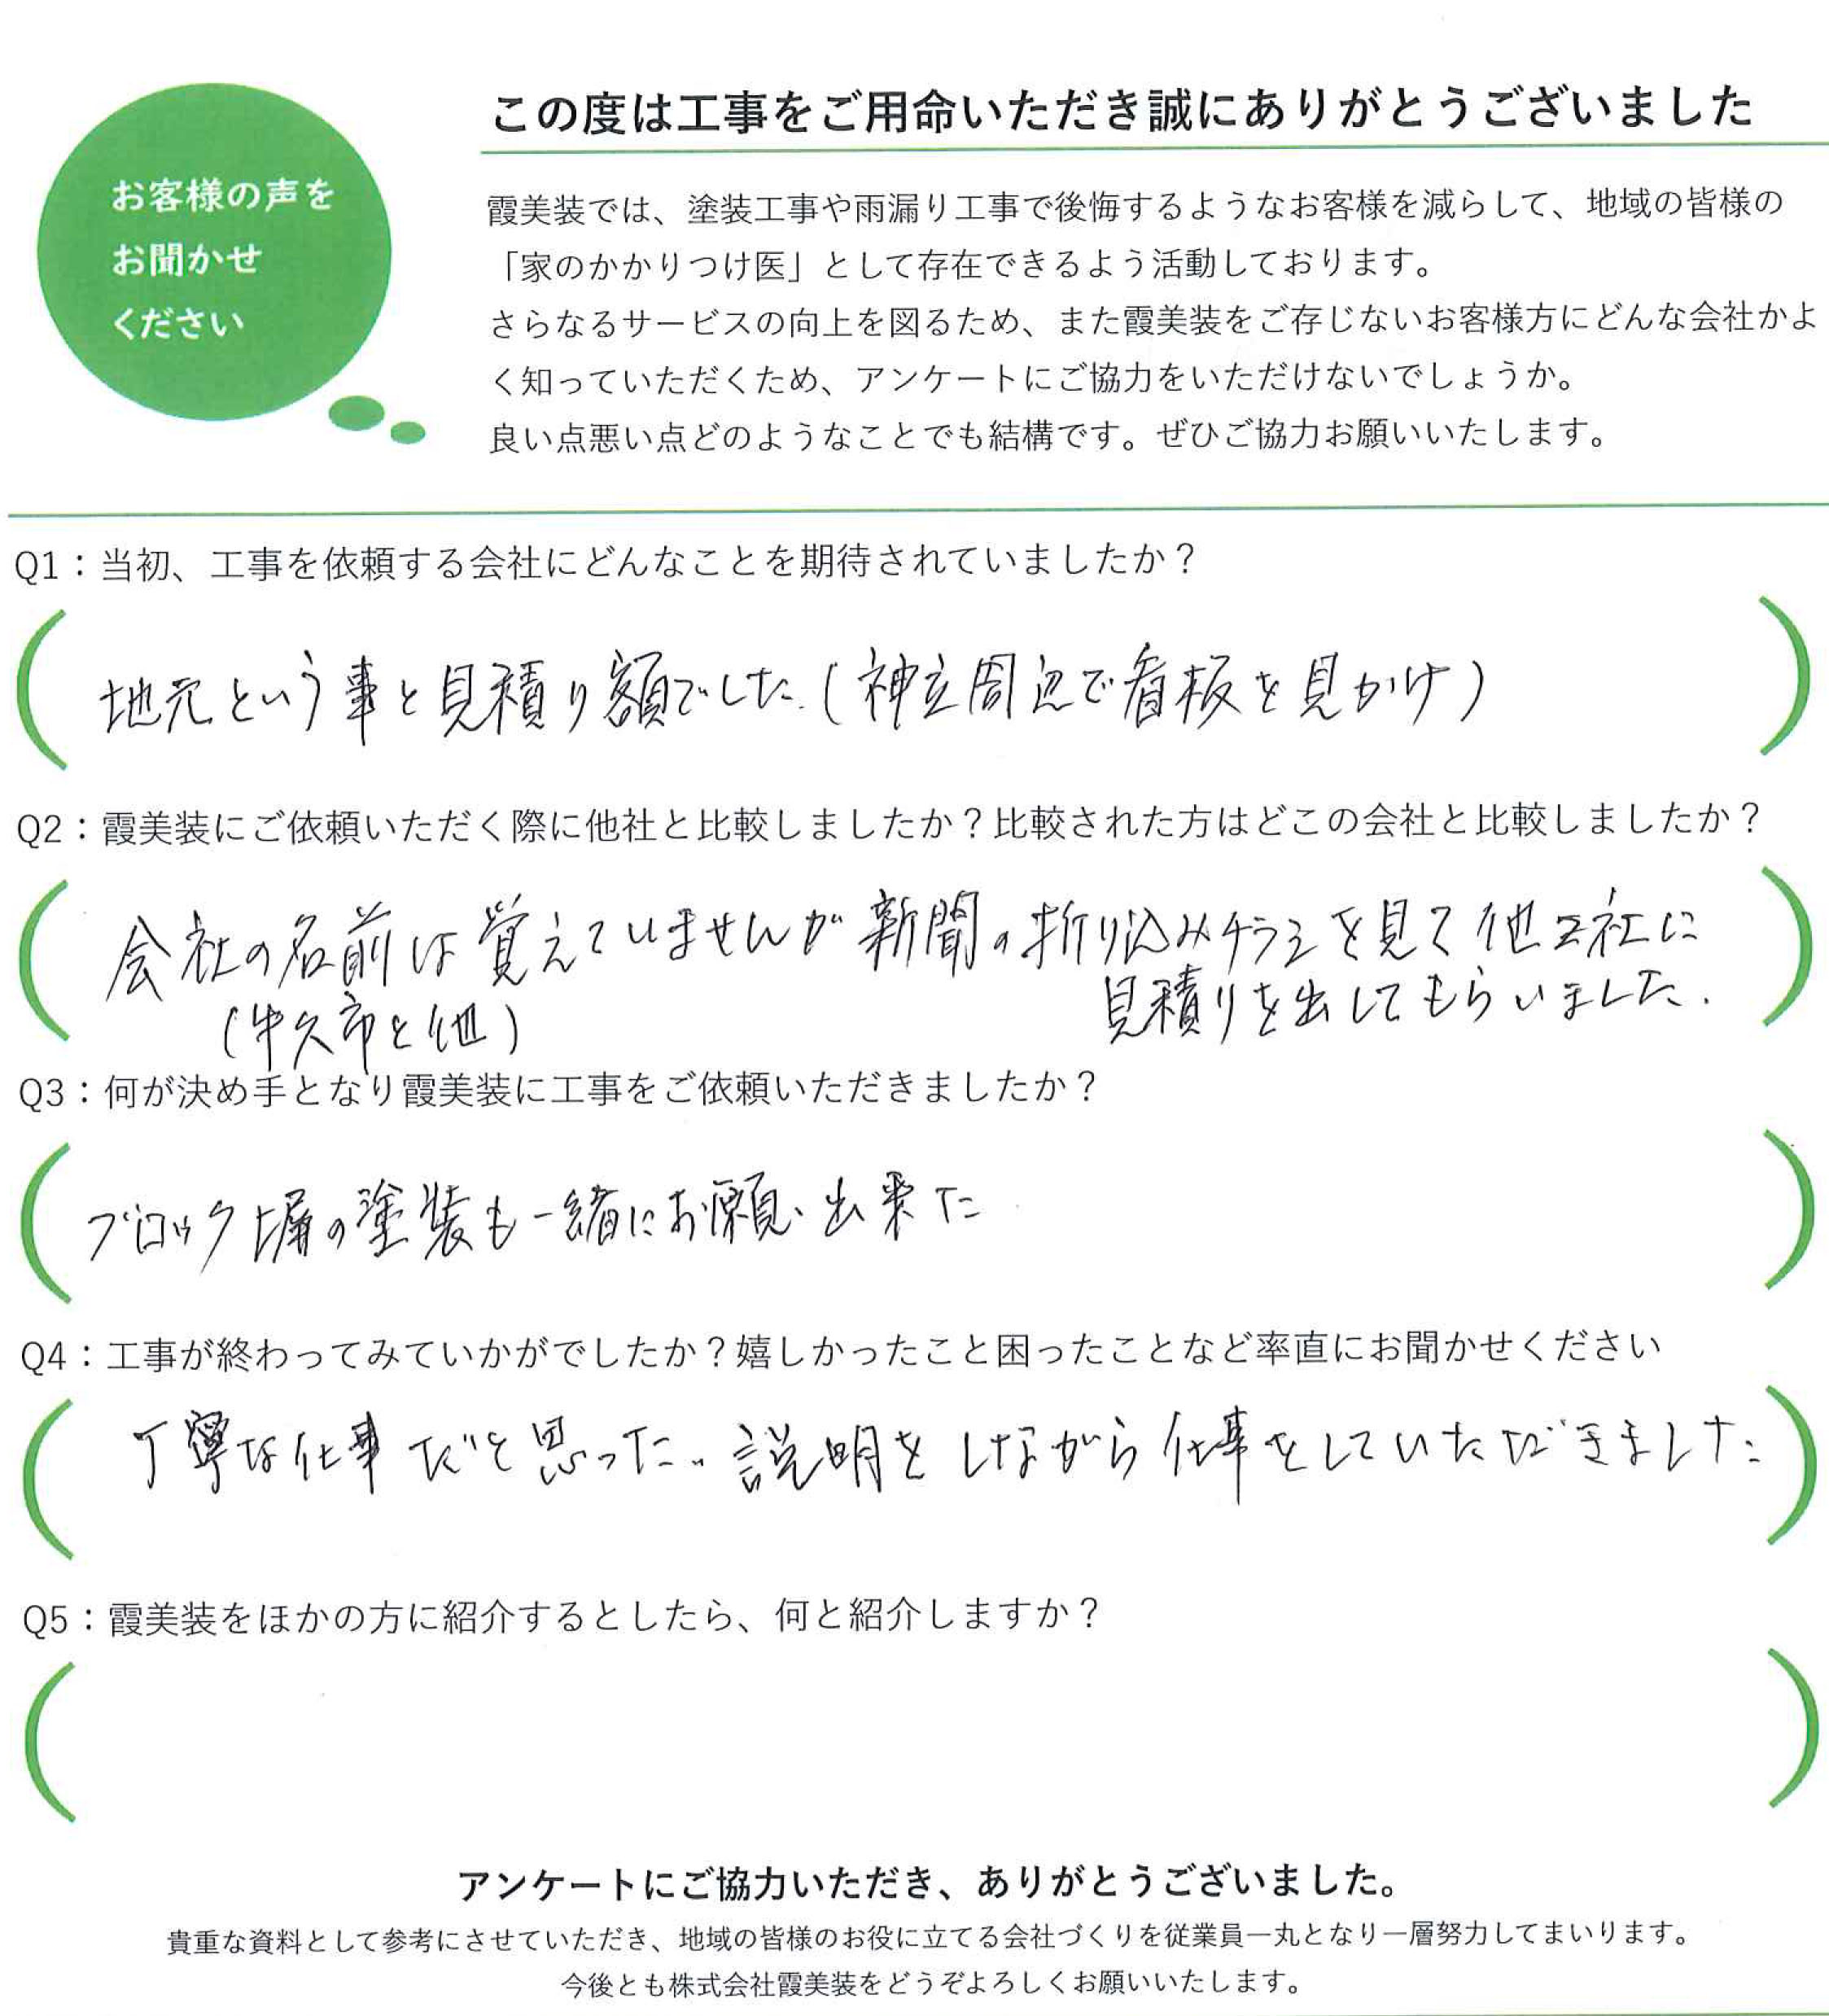 お客様の声を
お聞かせ
ください
この度は工事をご用命いただき誠にありがとうございました
霞美装では、塗装工事や雨漏り工事で後悔するようなお客様を減らして、地域の皆様の
「家のかかりつけ医」として存在できるよう活動しております。
さらなるサービスの向上を図るため、また霞美装をご存じないお客様方にどんな会社かよ
く知っていただくため、アンケートにご協力をいただけないでしょうか。
良い点悪い点どのようなことでも結構です。ぜひご協力お願いいたします。
Q1：当初、工事を依頼する会社にどんなことを期待されていましたか？
地元という事と見積り額でした.(神立周辺で看板を見かけ)
Q2：霞美装にご依頼いただく際に他社と比較しましたか？比較された方はどこの会社と比較しましたか？
会社の名前は覚えていませんが新聞の折り込みチラシを見て他2社に
見積りを出してもらいました.
(牛久市と他)
Q3：何が決め手となり霞美装に工事をご依頼いただきましたか？
ブロック塀の塗装も一緒にお願い出来た
Q4：工事が終わってみていかがでしたか？嬉しかったこと困ったことなど率直にお聞かせください
丁寧な仕事だと思った.. 説明をしながら仕事をしていただきました
Q5：霞美装をほかの方に紹介するとしたら、何と紹介しますか？
アンケートにご協力いただき、ありがとうございました。
貴重な資料として参考にさせていただき、地域の皆様のお役に立てる会社づくりを従業員一丸となり一層努力してまいります。
今後とも株式会社霞美装をどうぞよろしくお願いいたします。